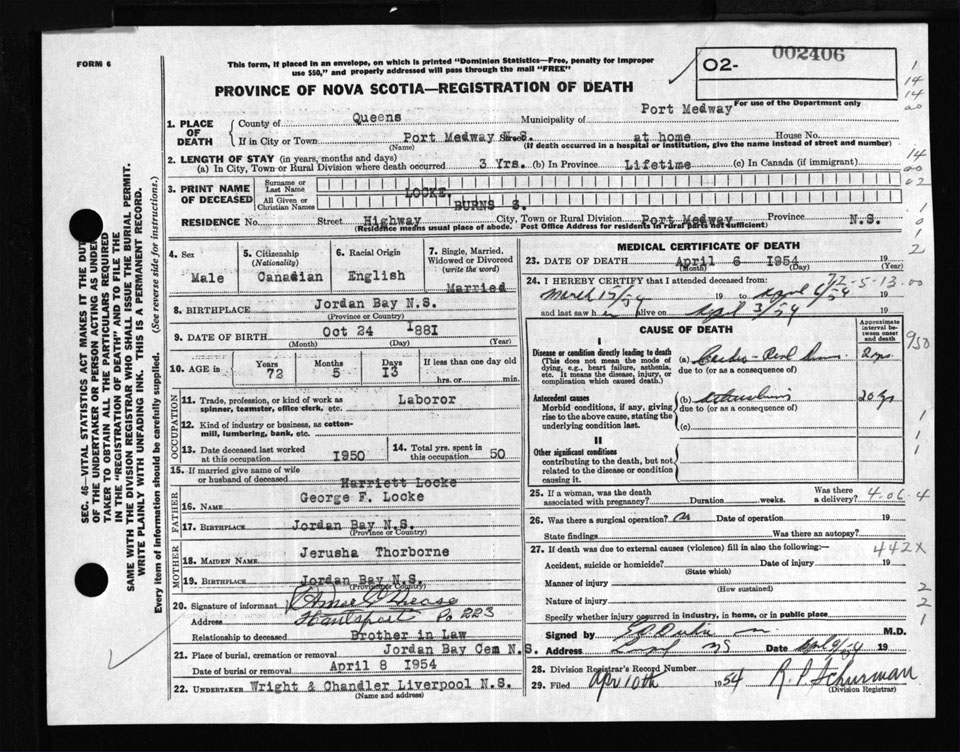 FORM 6
This form, if placed in an envelope, on which is printed "Dominion Statistics—Free, penalty for improper
use $50," and properly addressed will pass through the mail "FREE"
PROVINCE OF NOVA SCOTIA—REGISTRATION OF DEATH
O2-
002406
For use of the Department only
1. PLACE OF DEATH
County of Queens Municipality of Port Medway
If in City or Town Port Medway N.S. Street at home House No.
(Name) (If death occurred in a hospital or institution, give the name instead of street and number)
2. LENGTH OF STAY (in years, months and days)
(a) In City, Town or Rural Division where death occurred 3 Yrs. (b) In Province Lifetime (c) In Canada (if immigrant)
3. PRINT NAME OF DECEASED
Surname or Last Name LOCKE.
All Given or Christian Names BURNS S.
RESIDENCE No. Street Highway City, Town or Rural Division Port Medway Province N.S.
(Residence means usual place of abode. Post Office Address for residents in rural parts not sufficient)
4. Sex Male
5. Citizenship (Nationality) Canadian
6. Racial Origin English
7. Single, Married, Widowed or Divorced (write the word) Married
8. BIRTHPLACE Jordan Bay N.S.
(Province or Country)
9. DATE OF BIRTH Oct 24 1881
(Month) (Day) (Year)
10. AGE in Years 72 Months 5 Days 13 If less than one day old hrs. or min.
OCCUPATION
11. Trade, profession, or kind of work as spinner, teamster, office clerk, etc. Laboror
12. Kind of industry or business, as cotton-mill, lumbering, bank, etc.
13. Date deceased last worked at this occupation 1950
14. Total yrs. spent in this occupation 50
15. If married give name of wife or husband of deceased Harriett Locke
FATHER
16. NAME George F. Locke
17. BIRTHPLACE Jordan Bay N.S.
(Province or Country)
MOTHER
18. MAIDEN NAME Jerusha Thorborne
19. BIRTHPLACE Jordan Bay N.S.
(Province or Country)
20. Signature of informant
Address Hantsport
Relationship to deceased Brother in Law
21. Place of burial, cremation or removal Jordan Bay Cem N.S.
Date of burial or removal April 8 1954
22. UNDERTAKER Wright & Chandler Liverpool N.S.
(Name and address)
MEDICAL CERTIFICATE OF DEATH
23. DATE OF DEATH April 6 1954
(Month) (Day) (Year)
24. I HEREBY CERTIFY that I attended deceased from:
March 19 to April 19
and last saw h alive on April 3/54 19
CAUSE OF DEATH
Approximate interval between onset and death
I
Disease or condition directly leading to death
(This does not mean the mode of dying, e.g., heart failure, asthenia, etc. It means the disease, injury, or complication which caused death.)
(a)
due to (or as a consequence of)
Antecedent causes
Morbid conditions, if any, giving rise to the above cause, stating the underlying condition last.
(b) 20 yrs
due to (or as a consequence of)
(c)
II
Other significant conditions
contributing to the death, but not related to the disease or condition causing it.
25. If a woman, was the death associated with pregnancy? Duration weeks. Was there a delivery?
4-06-4
26. Was there a surgical operation? Date of operation 19
State findings Was there an autopsy?
27. If death was due to external causes (violence) fill in also the following:—
442X
Accident, suicide or homicide? Date of injury 19
(State which)
Manner of injury
(How sustained)
Nature of injury
Specify whether injury occurred in industry, in home, or in public place
Signed by M.D.
Address Date 19
28. Division Registrar's Record Number
29. Filed Apr 10th 1954 R. P. Schurman
(Division Registrar)
SEC. 46—VITAL STATISTICS ACT MAKES IT THE DUTY
OF THE UNDERTAKER OR PERSON ACTING AS UNDER
TAKER TO OBTAIN ALL THE PARTICULARS REQUIRED
IN THE "REGISTRATION OF DEATH" AND TO FILE THE
SAME WITH THE DIVISION REGISTRAR WHO SHALL ISSUE THE BURIAL PERMIT.
WRITE PLAINLY WITH UNFADING INK. THIS IS A PERMANENT RECORD.
Every item of information should be carefully supplied. (See reverse side for instructions.)